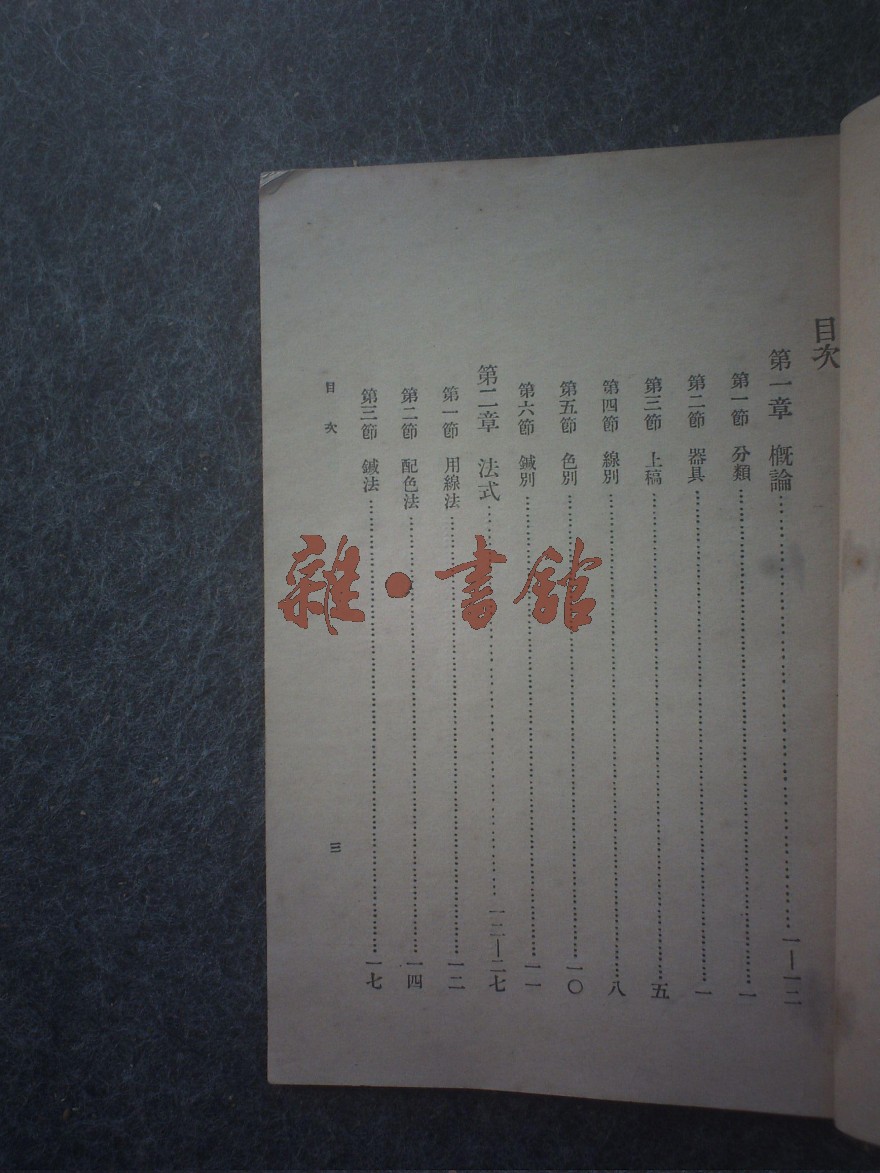 目次
第一章 概論……一—一二
第一節 分類……一
第二節 器具……一
第三節 上稿……五
第四節 線別……八
第五節 色別……一〇
第六節 鍼別……一一
第二章 法式……一二—二七
第一節 用線法……一二
第二節 配色法……一四
第三節 鍼法……一七
目次 三
雜·書館